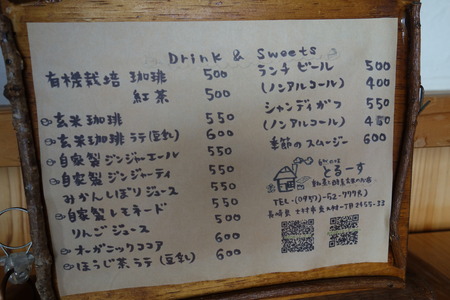 Drink & Sweets
有機栽培 珈琲 500
紅茶 500
玄米珈琲 550
玄米珈琲ラテ(豆乳) 600
自家製ジンジャーエール 550
自家製ジンジャーティ 550
みかんしぼりジュース 550
自家製レモネード 550
りんごジュース 600
オーガニックココア 600
ほうじ茶ラテ(豆乳) 600
ランチビール 500
(ノンアルコール) 400
シャンディガフ 550
(ノンアルコール) 450
季節のスムージー 600
とるーす
TEL・(0957)-52-7778
長崎県 大村市 東大村一丁目2555-33